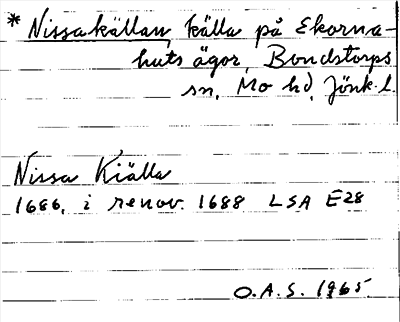 * Nissakällan, källa på Ekorna-
huts ägor, Bondstorps
sn, Mo hd, Jönk. l.
Nissa Kiälla
1686, i renov. 1688 LSA E28
O.A.S. 1965